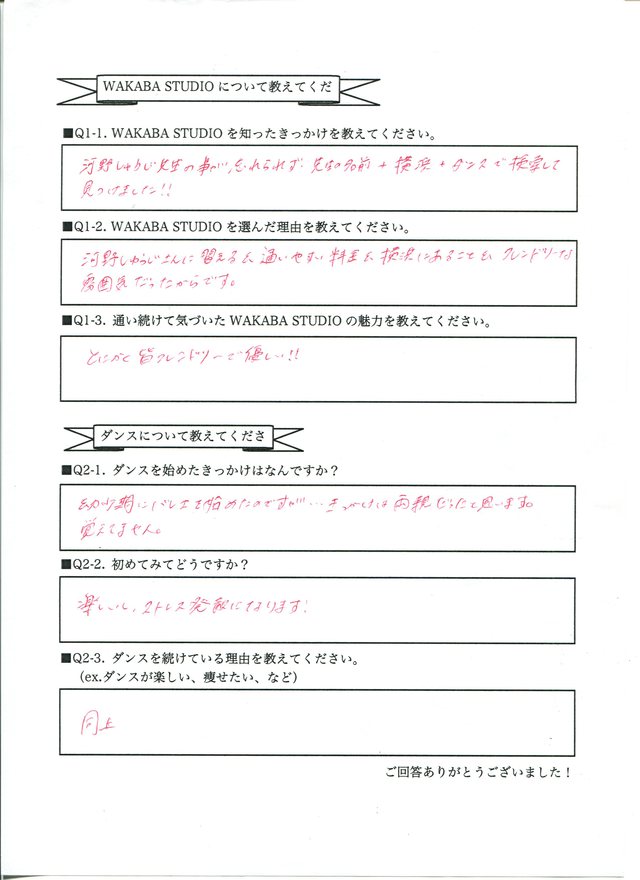 WAKABA STUDIO について教えてくだ
■Q1-1. WAKABA STUDIO を知ったきっかけを教えてください。
河野しゅうじ先生の事が、忘れられず 先生の名前 + 横浜 + ダンスで検索して
見つけました!!
■Q1-2. WAKABA STUDIO を選んだ理由を教えてください。
河野しゅうじさんに習える& 通いやすい料金& 横浜にあること& フレンドリーな
雰囲気だったからです。
■Q1-3. 通い続けて気づいた WAKABA STUDIO の魅力を教えてください。
とにかく皆フレンドリーで優しい!!
ダンスについて教えてくださ
■Q2-1. ダンスを始めたきっかけはなんですか？
幼少期にバレエを始めたのですが… きっかけは両親だったと思います。
覚えてません。
■Q2-2. 初めてみてどうですか？
楽しいし、ストレス発散になります!
■Q2-3. ダンスを続けている理由を教えてください。
（ex.ダンスが楽しい、痩せたい、など）
同上
ご回答ありがとうございました！